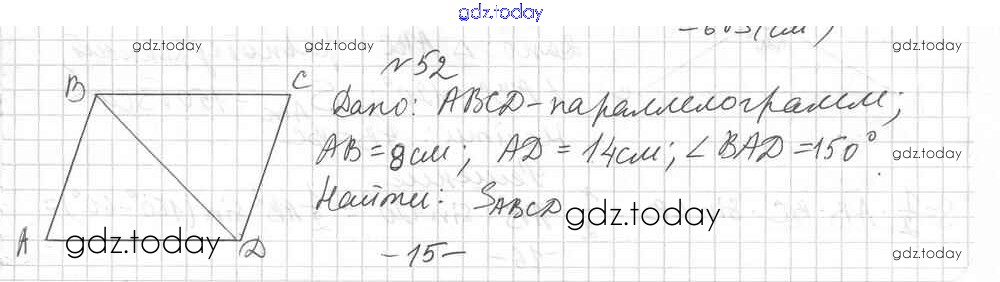 gdz.today
gdz.today gdz.today gdz.today
№52
B C
Дано: ABCD-параллелограмм;
AB=8см; AD=14см; ∠BAD=150°
gdz.today
Найти: SABCD
gdz.today
A D
gdz.today
-15-
gdz.today